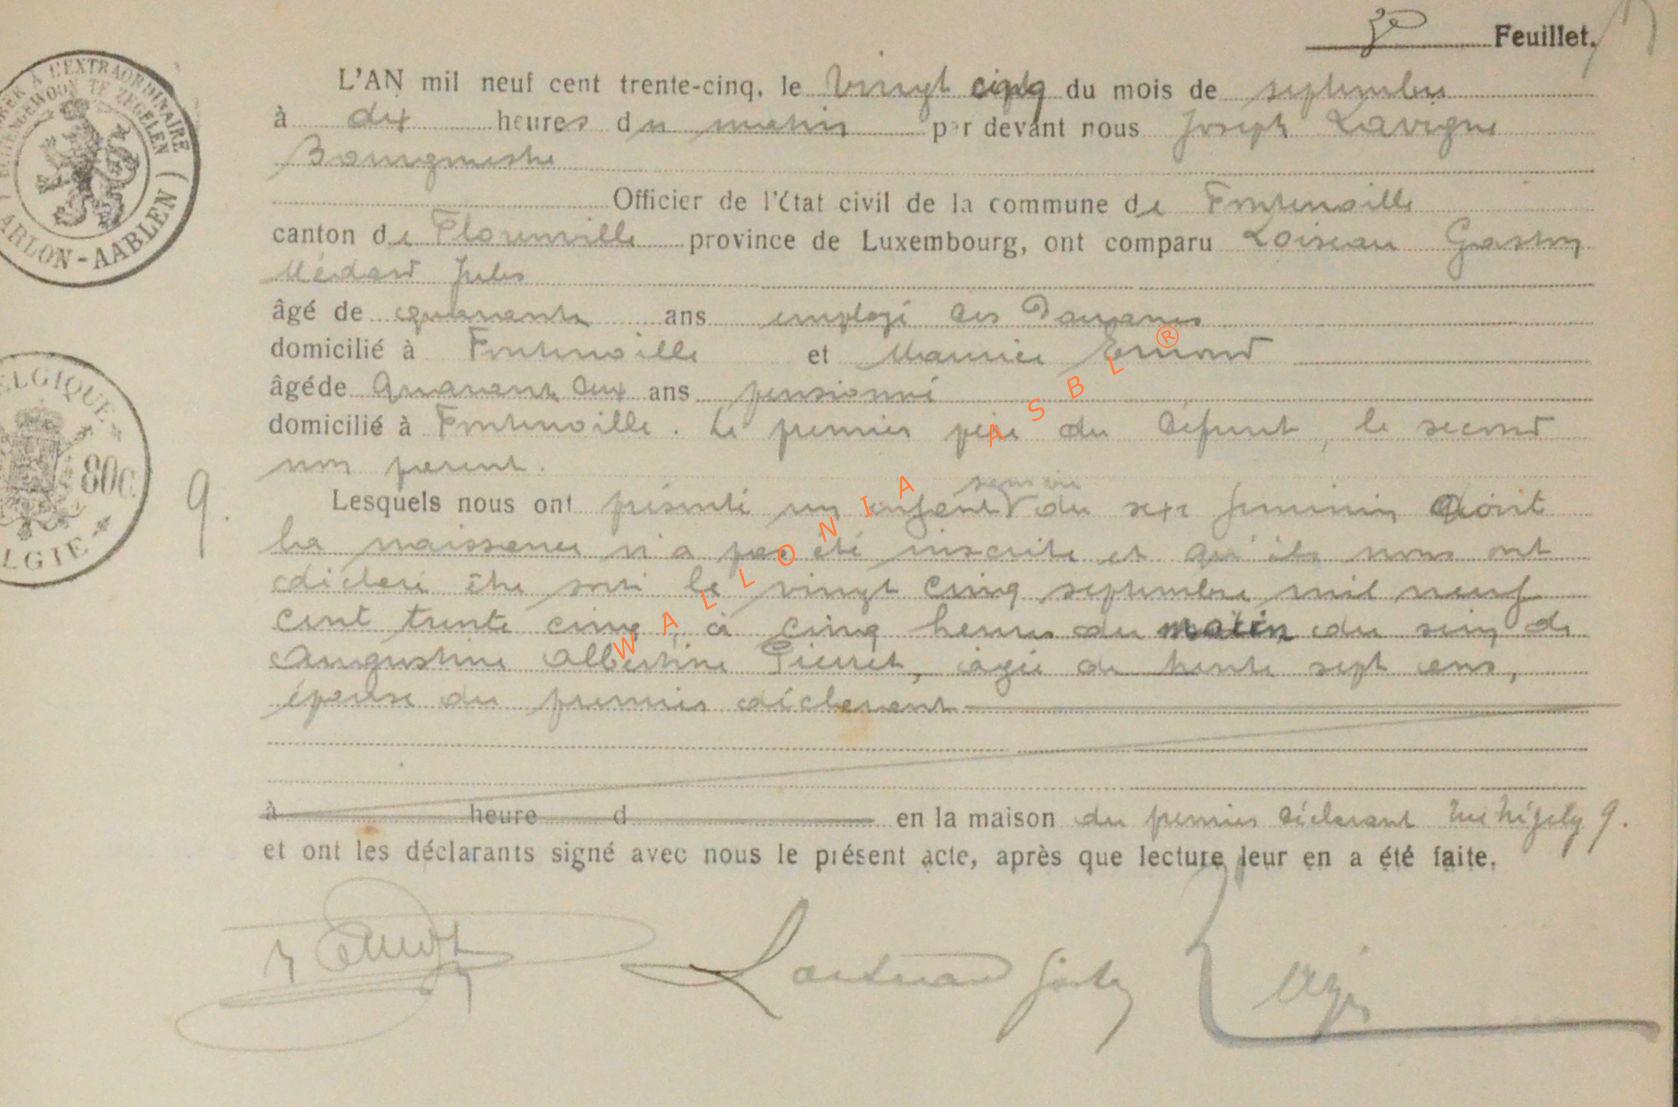 3e Feuillet.
L'AN mil neuf cent trente-cinq, le vingt cinq du mois de septembre
à dix heures du matin par devant nous Joseph Lavigne
Bourgmestre
Officier de l'état civil de la commune de Fontenoille
canton de Florenville province de Luxembourg, ont comparu Loiseau Gaston
Médard Jules
âgé de quarante ans employé des Douanes
domicilié à Fontenoille et Maurice Emond
âgé de quarante deux ans pensionné
domicilié à Fontenoille. Le premier père du défunt, le second
non parent.
9. Lesquels nous ont présenté un enfant V du sexe féminin dont
la naissance n'a pas été inscrite et qu'ils nous ont
déclaré être sorti le vingt cinq septembre mil neuf
cent trente cinq, à cinq heures du matin du sein de
Augustine Albertine Pierret, âgée de trente sept ans,
épouse du premier déclarant
à heure d en la maison du premier déclarant 9.
et ont les déclarants signé avec nous le présent acte, après que lecture leur en a été faite.
L'EXTRAORDINAIRE
ARLON-AARLEN
BELGIQUE
80C
BELGIE
WALLONIA ASBL ®